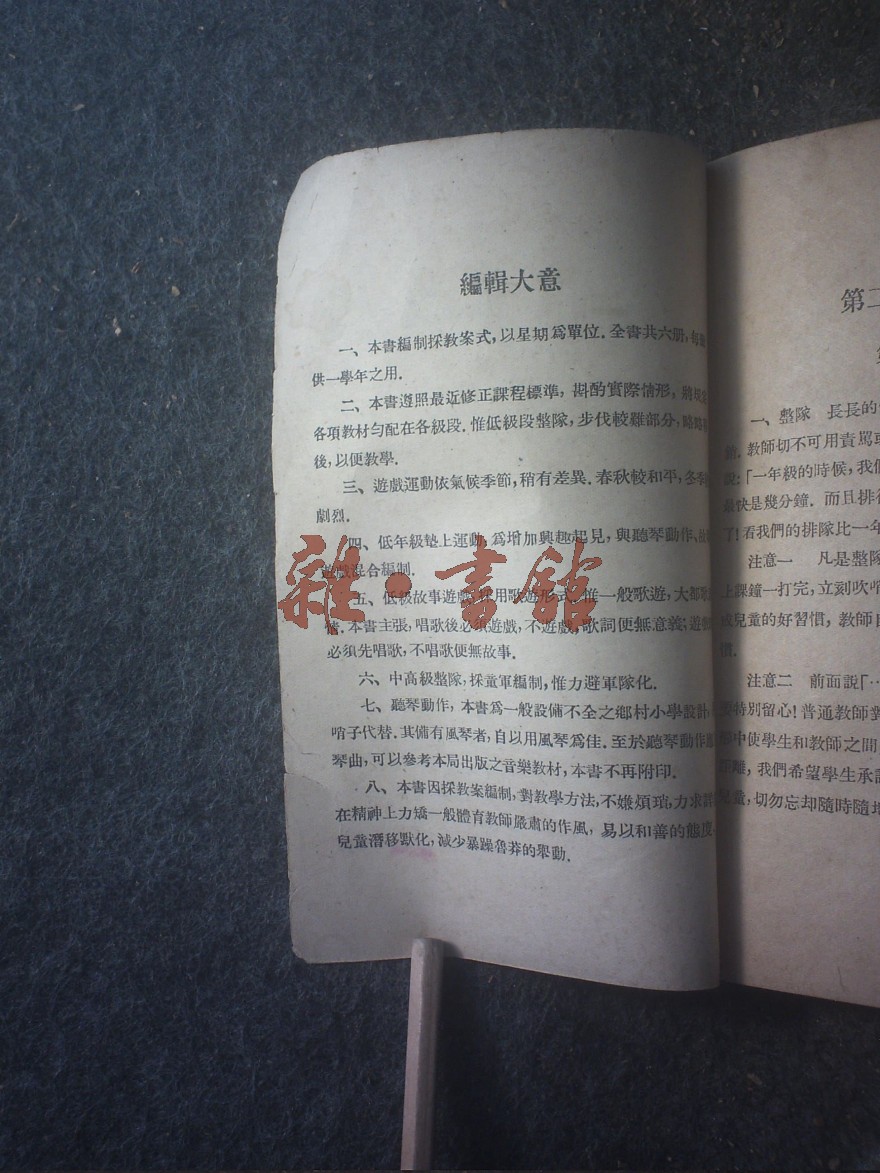 編輯大意
一、本書編制採教案式，以星期爲單位．全書共六册，每
供一學年之用．
二、本書遵照最近修正課程標準，斟酌實際情形，將
各項教材勻配在各級段．惟低級段整隊，步伐較難部分，略
後，以便教學．
三、遊戲運動依氣候季節，稍有差異．春秋較和平，冬季
劇烈．
四、低年級墊上運動，爲增加興趣起見，與聽琴動作、故
遊戲混合編制．
五、低級故事遊戲，採用歌遊形式．惟一般歌遊，大都
情．本書主張，唱歌後必須遊戲，不遊戲，歌詞便無意義；遊戲
必須先唱歌，不唱歌便無故事．
六、中高級整隊，採童軍編制，惟力避軍隊化．
七、聽琴動作，本書爲一般設備不全之鄉村小學設計，
哨子代替．其備有風琴者，自以用風琴爲佳．至於聽琴動作
琴曲，可以參考本局出版之音樂教材，本書不再附印．
八、本書因採教案編制，對教學方法，不嫌煩瑣，力求
在精神上力矯一般體育教師嚴肅的作風，易以和善的態度，
兒童潛移默化，減少暴躁魯莽的舉動．
雜·書館
第二
一、整隊　長長的
教師切不可用責罵
說：「一年級的時候，我們
最快是幾分鐘．而且排
了！看我們的排隊比一年
注意一　凡是整隊
上課鐘一打完，立刻吹哨
成兒童的好習慣，教師
注意二　前面說「…
特別留心！普通教師
中使學生和教師之間
離，我們希望學生承
童，切勿忘却隨時隨